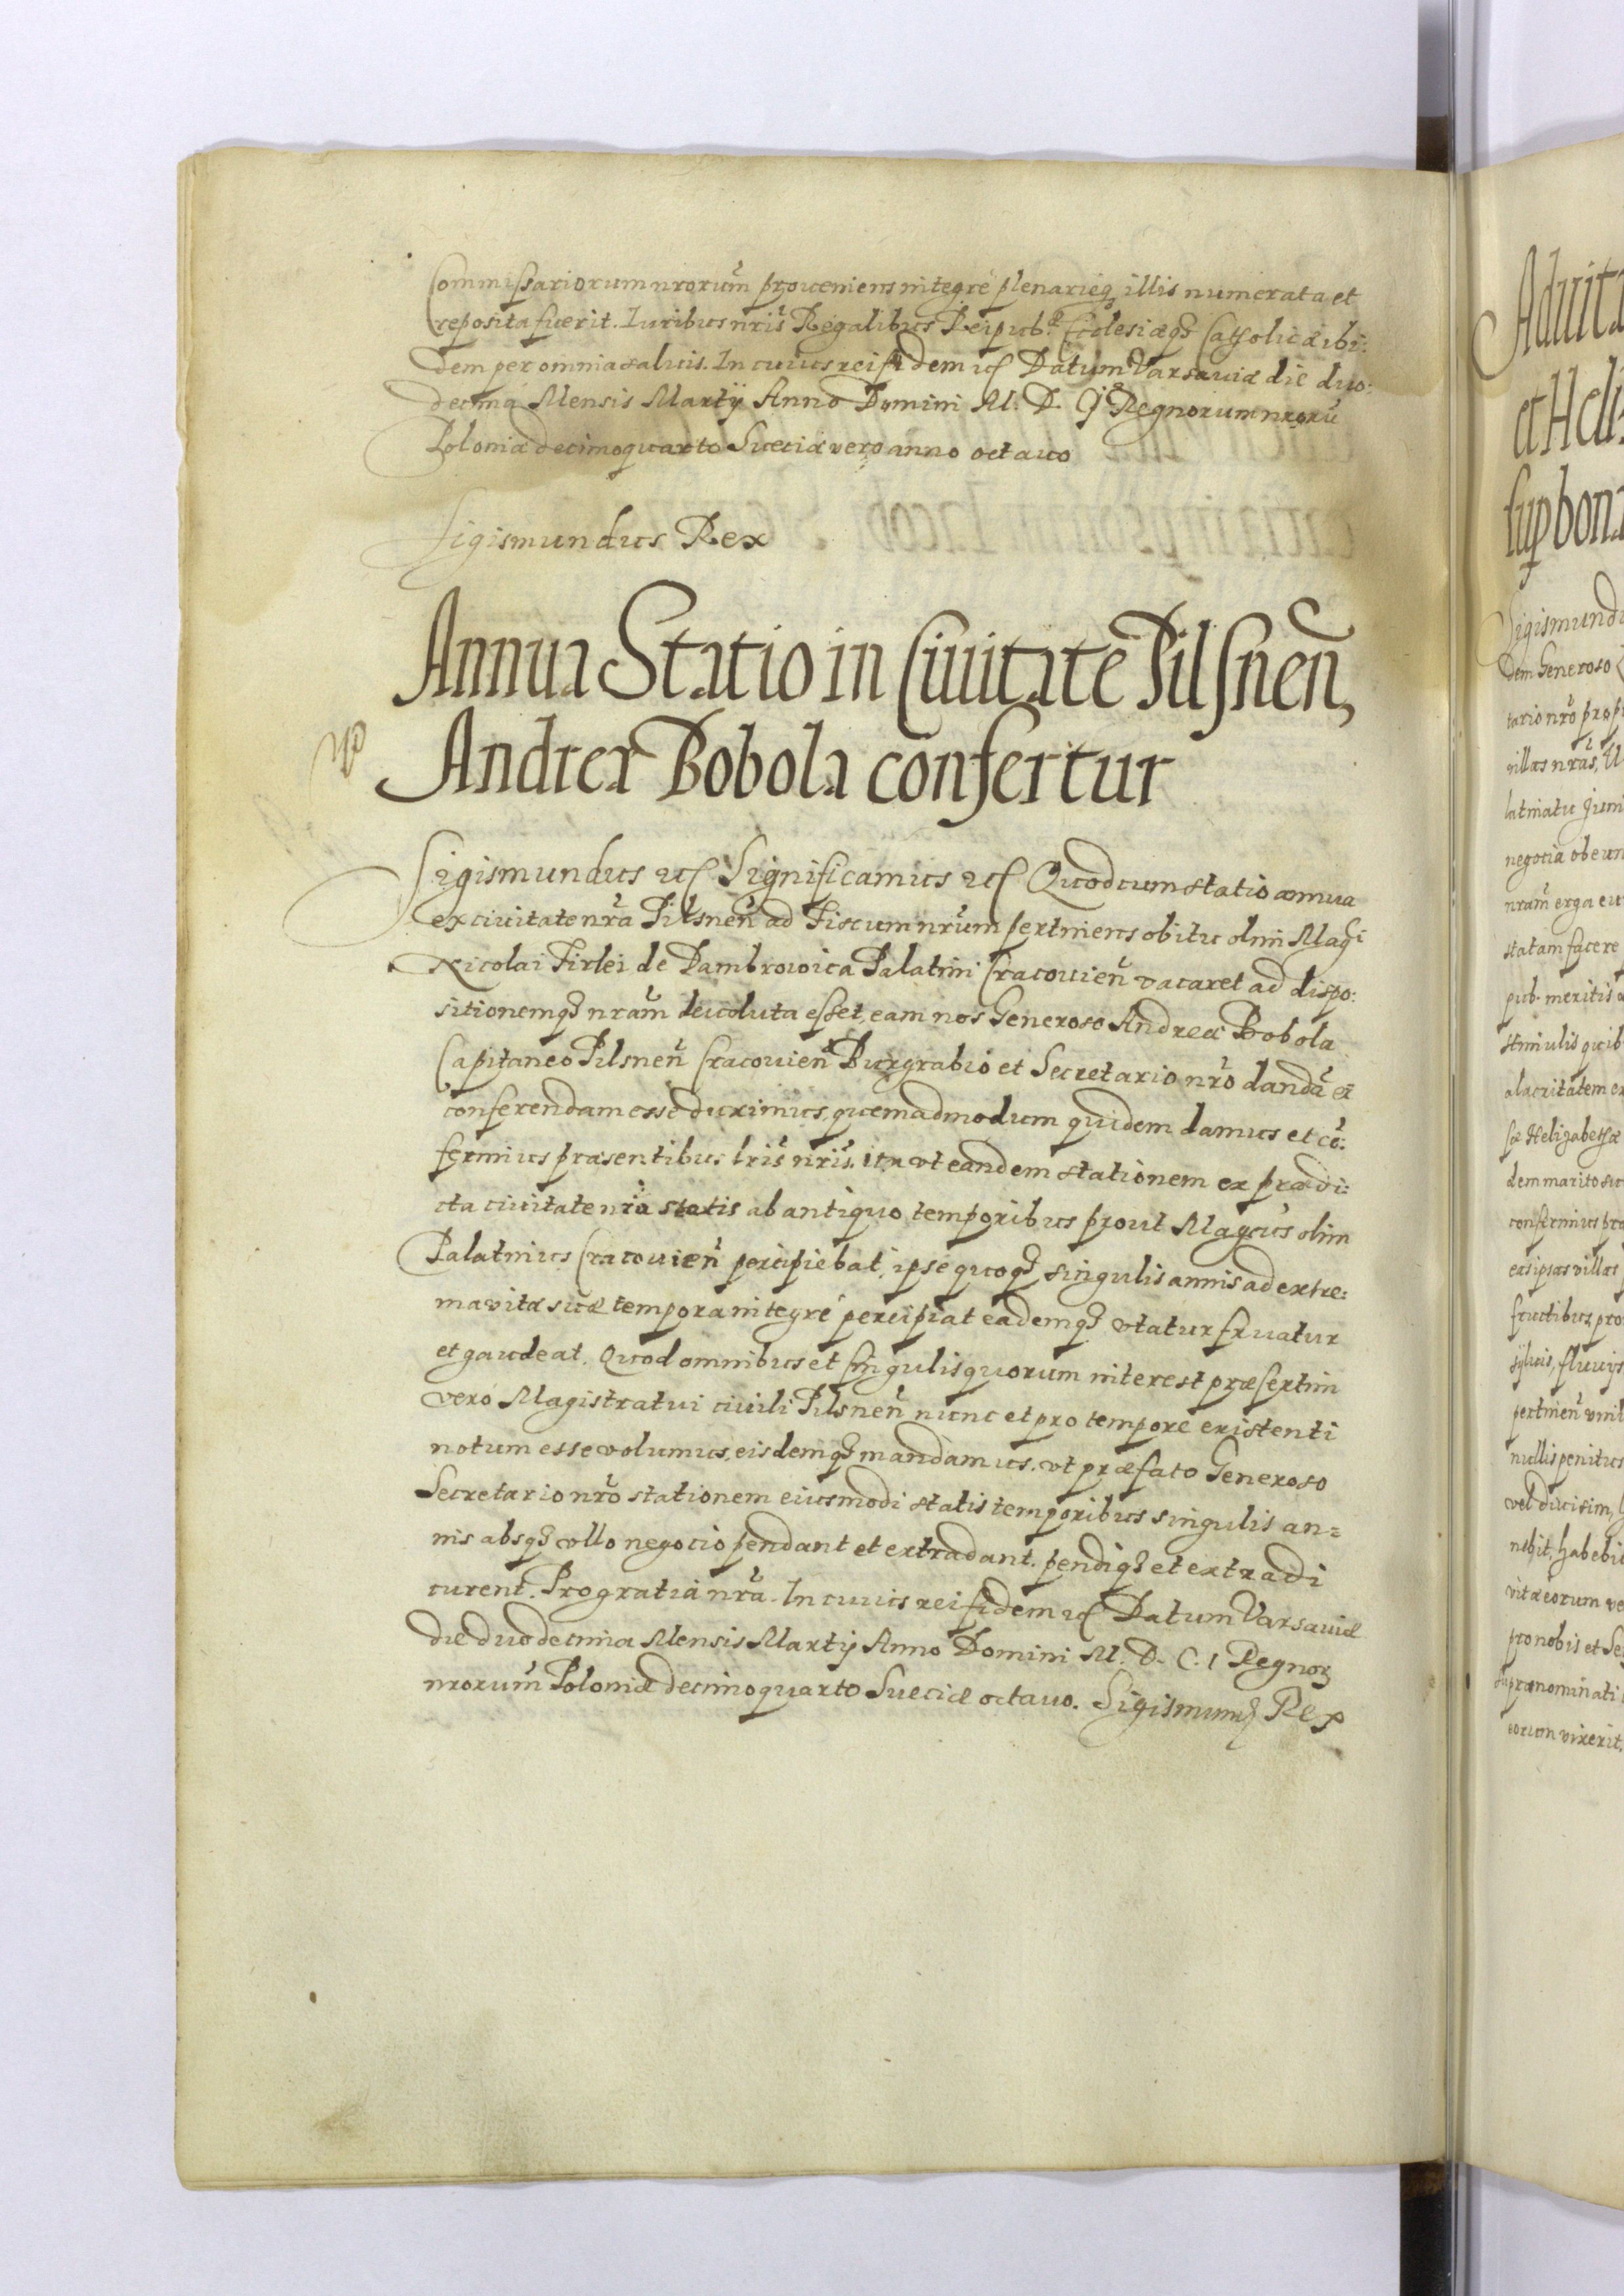 Commissariorum nrorum̃ proueniens integrè plenarieq3 illis numerata et
reposita fuerit. Iuribus nris̃ Regalibus Reipub. Ecclesiæq3 Catholicæ ibi:
dem per omnia saluis. In cuius rei fidem etc Datum Varsauiæ die duo:
decima Mensis Martij Anno Domini M. D. Regnorum nrorũ
Poloniæ decimoquarto Sueciæ vero anno octauo
Sigismundus Rex
Annua Statio in Ciuitate Pilsnen̄,
Andreæ Bobola confertur
Sigismundus etc Significamus etc Quod cum statio annua
ex ciuitate nrã Pilsnen̄ ad Fiscum nrũm pertinens obitu olim Magci
Nicolai Firlei de Dambrowica Palatini Cracouien̄ vacaret ad dispo:
sitionemq3 nram̃ deuoluta esset, eam nos Generoso Andreæ Bobola
Capitaneo Pilsnen̄ Cracouien̄ Burgrabio et Secretario nrõ dandã et
conferendam esse duximus, quemadmodum quidem damus et cõ:
ferimus præsentibus lris̃ nris̃. ita vt eandem stationem ex prædi:
cta ciuitate nrã statis ab antiquo temporibus prout Magcus olim
Palatinus Cracouien̄ percipiebat, ipse quoq3 singulis annis ad extre:
ma vitæ suæ tempora integrè percipiat eademq3 vtatur fruatur
et gaudeat. Quod omnibus et singulis quorum interest præsertim
verò Magistratui ciuili Pilsnen̄ nunc et pro tempore existenti
notum esse volumus, eisdemq3 mandamus. vt præfato Generoso
Secretario nrõ stationem eiusmodi statis temporibus singulis an=
nis absq3 vllo negotio pendant et extradant. pendiq3 et extradi
curent. Pro gratia nrã. In cuius rei fidem etc Datum Varsauiæ
die duodecima Mensis Martij Anno Domini M. D. C. I Regnor3
nrorum̃ Poloniæ decimoquarto Sueciæ octauo. Sigismund3 Rex
et Heli
sup bon
Sigismund
dem Generoso
tario nrõ
villas nras̃,
negotia obeun
nram̃ erga
statam facere
pub. meritis
stimulis quib
alacritatem
Helizabethæ
dem marito
conferimus
eas ipsas villas
fructibus, pro
syluis, fluuijs
pertinen̄
nullis penitus
vel diuisim,
habebi
vitæ eorum
pro nobis et
supranominati
eorum vixerit.